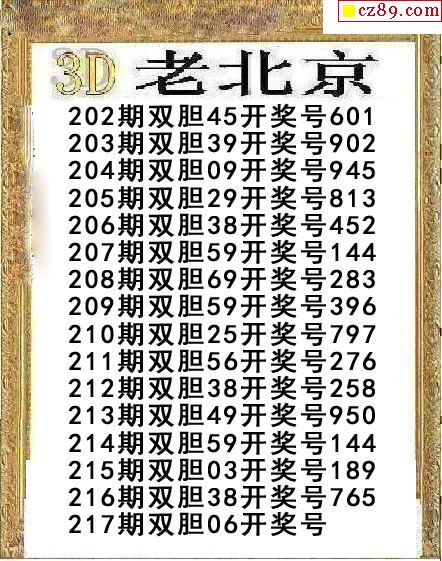 cz89.com
3D 老北京
202期双胆45开奖号601
203期双胆39开奖号902
204期双胆09开奖号945
205期双胆29开奖号813
206期双胆38开奖号452
207期双胆59开奖号144
208期双胆69开奖号283
209期双胆59开奖号396
210期双胆25开奖号797
211期双胆56开奖号276
212期双胆38开奖号258
213期双胆49开奖号950
214期双胆59开奖号144
215期双胆03开奖号189
216期双胆38开奖号765
217期双胆06开奖号